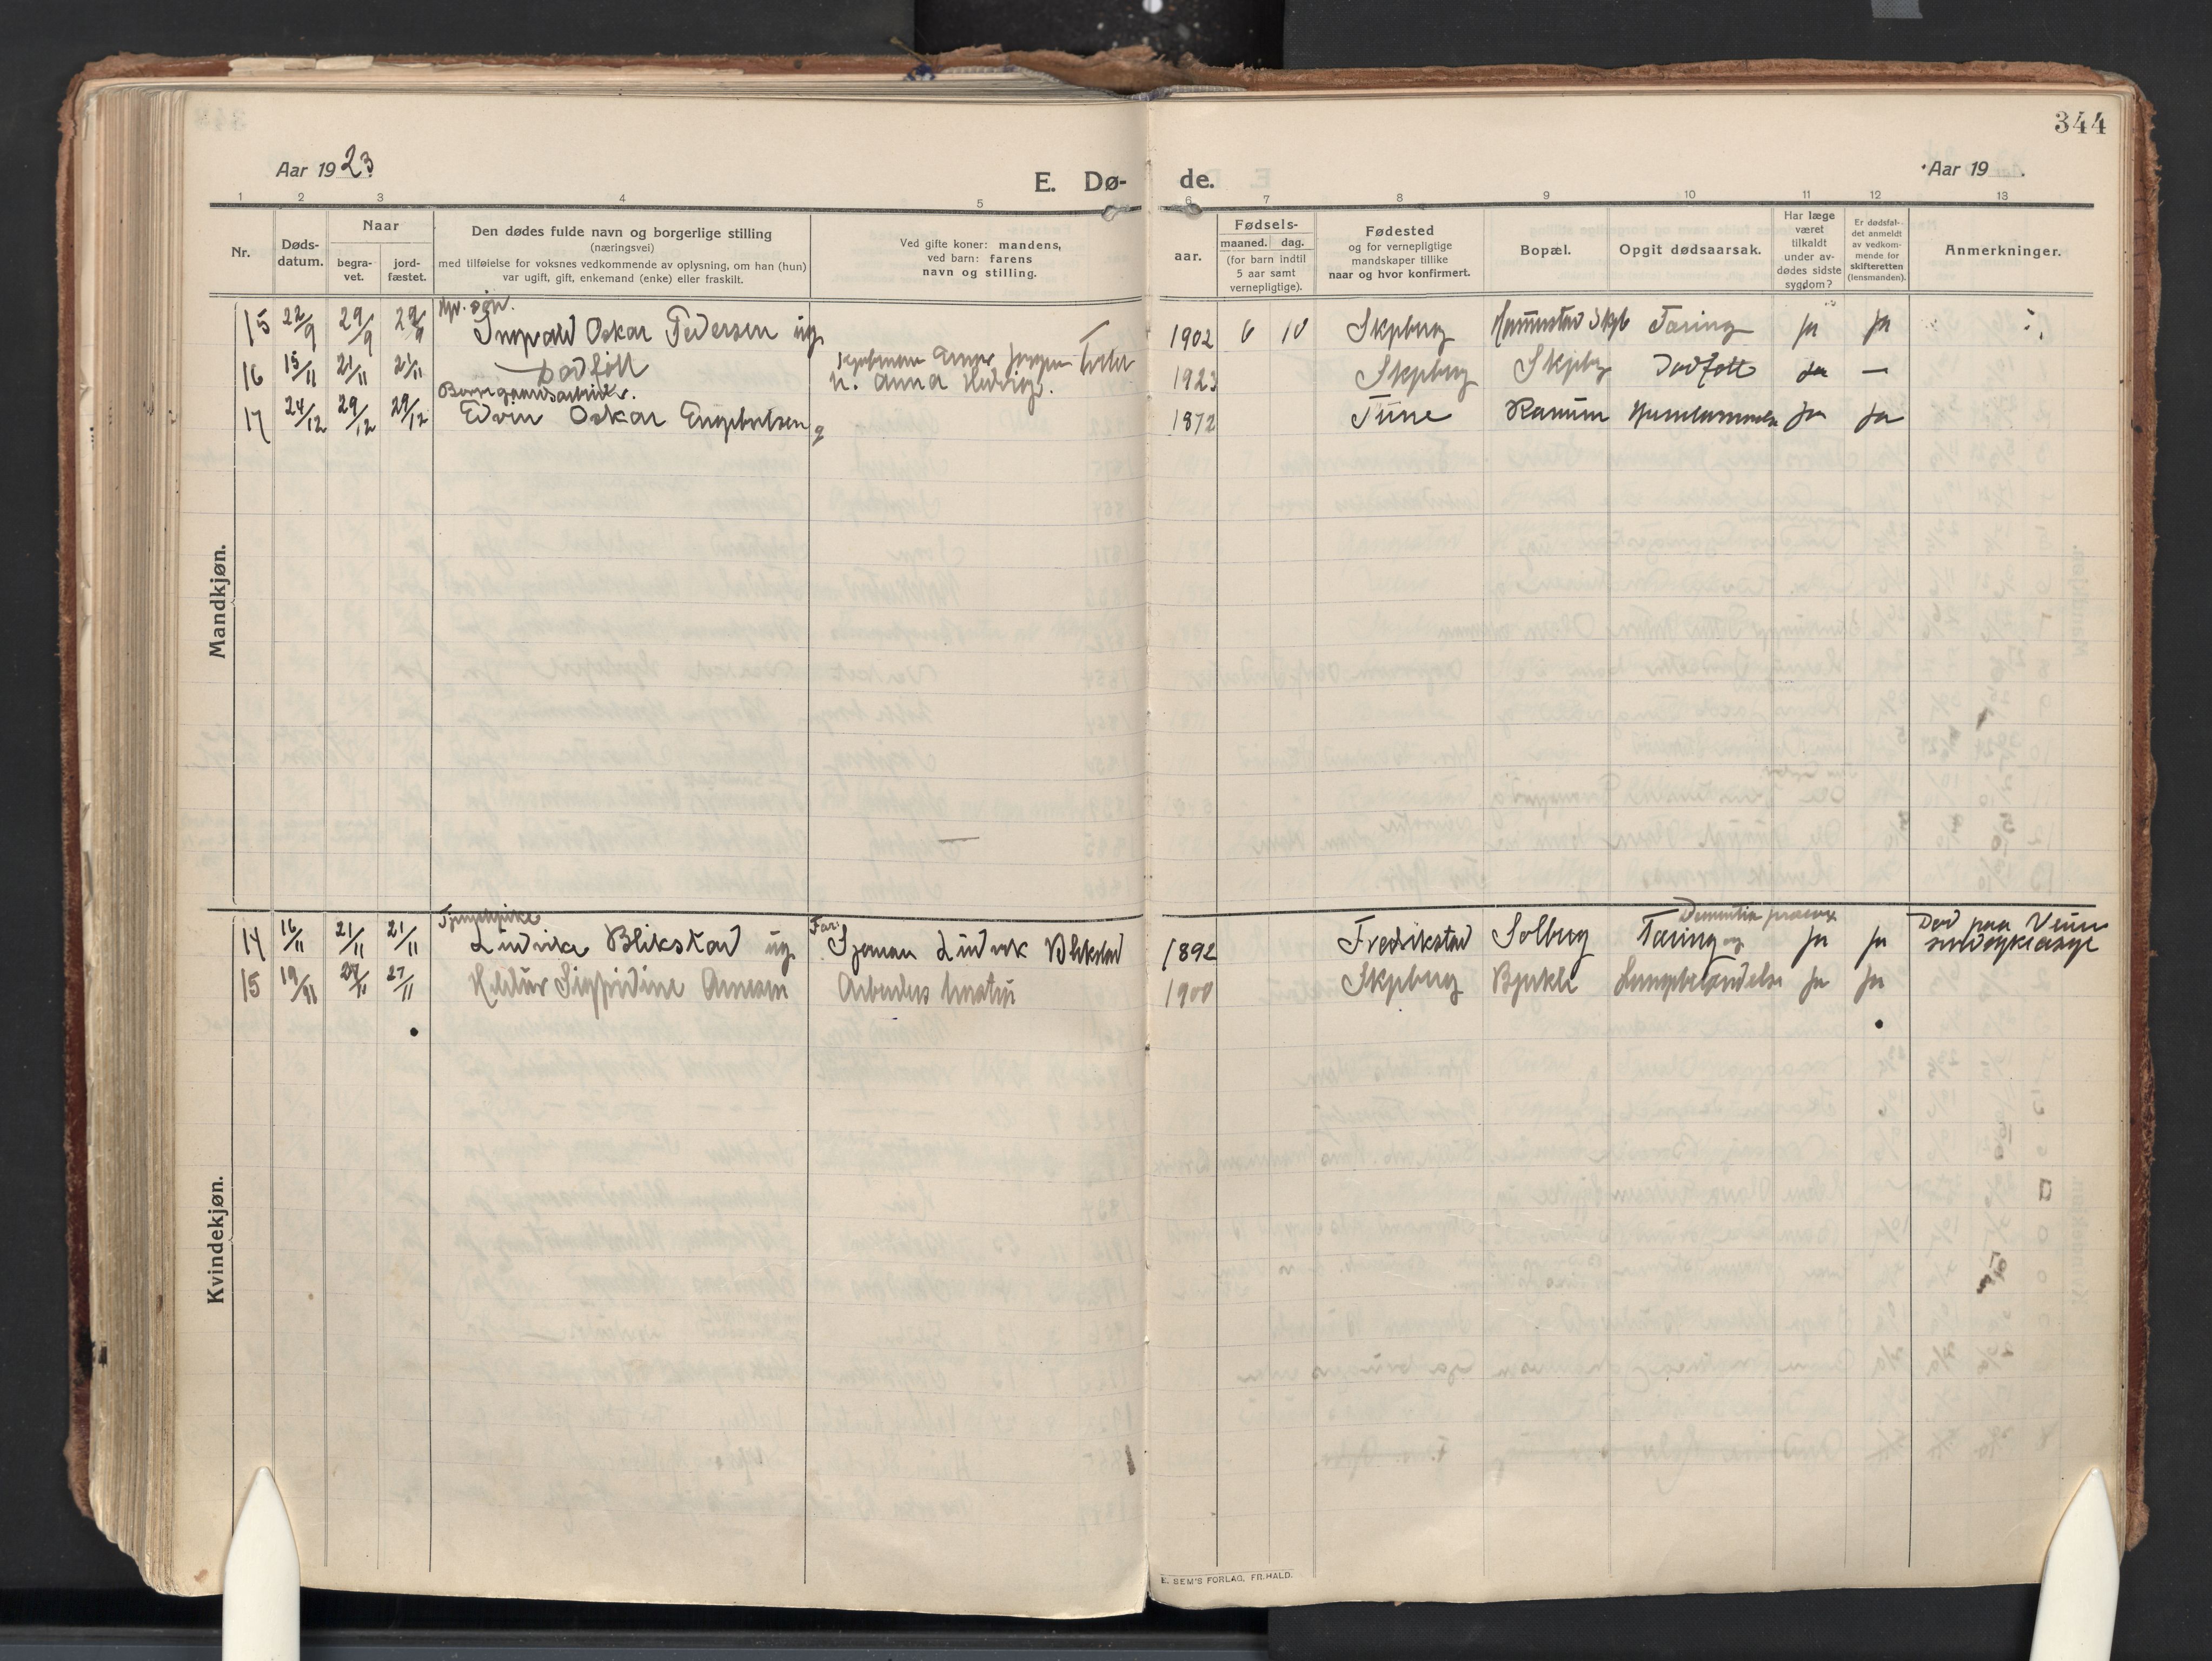 344
Aar 1923
E. Dø-
de.
Aar 19 .
1 2 3 4 5 6 7 8 9 10 11 12 13
Nr.
Døds-
datum.
Naar
begra-
vet.
jord-
fæstet.
Den dødes fulde navn og borgerlige stilling
(næringsvei)
med tilføielse for voksnes vedkommende av oplysning, om han (hun)
var ugift, gift, enkemand (enke) eller fraskilt.
Ved gifte koner: mandens,
ved barn: farens
navn og stilling.
aar.
Fødsels-
maaned. dag.
(for barn indtil
5 aar samt
vernepligtige).
Fødested
og for vernepligtige
mandskaper tillike
naar og hvor konfirmert.
Bopæl.
Opgit dødsaarsak.
Har læge
været
tilkaldt
under av-
dødes sidste
sygdom?
Er dødsfal-
det anmeldt
av vedkom-
mende for
skifteretten
(lensmanden).
Anmerkninger.
Mandkjøn.
15 22/9 29/9 29/9 Ingvald Oskar Pedersen ug. 1902 6 10 Skjeberg Tæring ja ja
16 15/11 21/11 21/11 Dødfødt 1923 Skjeberg Skjebg Dødfødt ja —
n. Anna Hedvig
17 24/12 29/12 29/12 Edvin Oskar Engebretsen g 1872 Tune ja ja
Kvindekjøn.
Tjenestepike
14 16/11 21/11 21/11 Ludvika Blikstad ug. Far: Sjøman Ludvik Blikstad 1892 Fredrikstad Solberg Tæring og Dementia præcox ja ja Død paa Veum
sindsykeasyl
15 19/11 27/11 27/11 Hildur Sigfridine Arnesen Arbeiders hustru 1900 Skjeberg Bjukle Lungebetændelse ja ja
E. SEM'S FORLAG, FR.HALD.